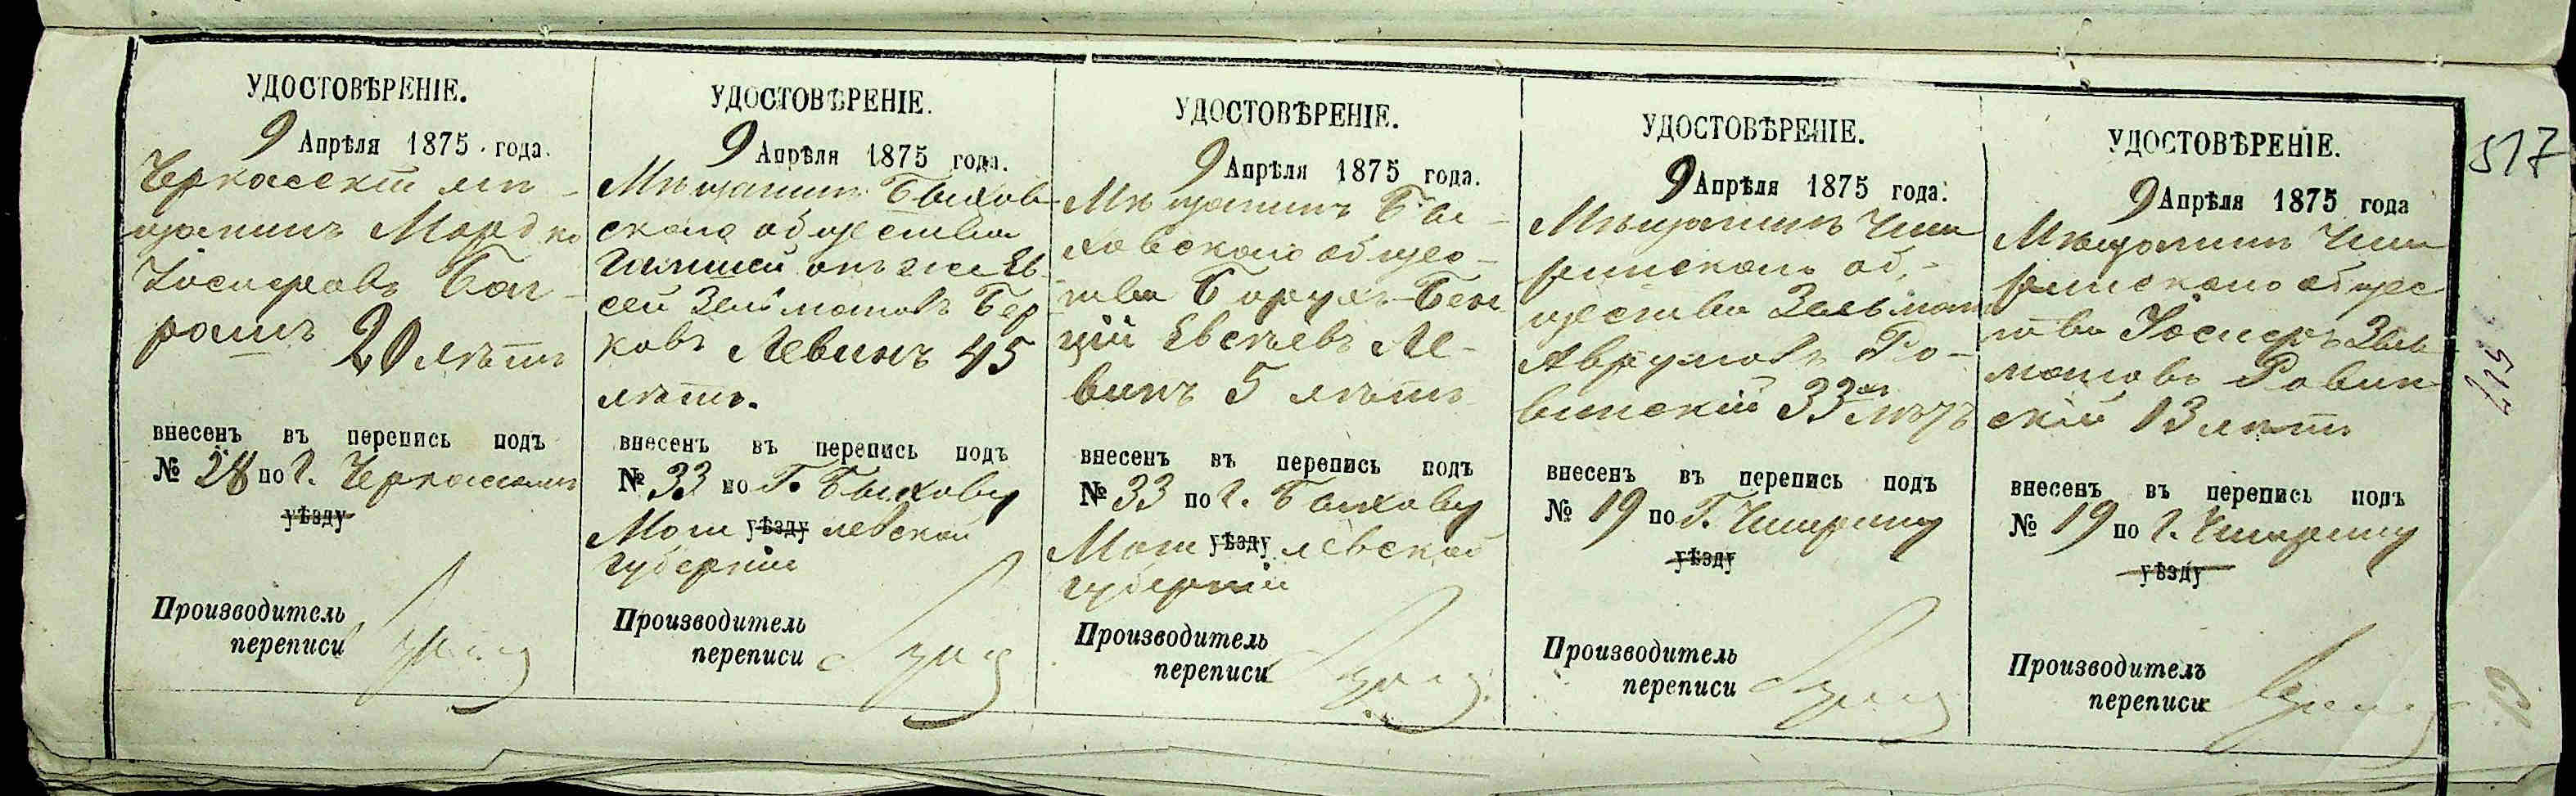 УДОСТОВѢРЕНІЕ.
9 Апрѣля 1875 года.
Черкасскій мѣ-
щанинъ Мордко
Іосиповъ Баг-
рашъ 20 лѣтъ
внесенъ въ перепись подъ
№ 28 по г. Черкассамъ
уѣзду
Производитель
переписи
УДОСТОВѢРЕНІЕ.
9 Апрѣля 1875 года.
Мѣщанинъ Быхов-
скаго общества
онъ же Ев-
сей Зельмановъ Бер
ковъ Левинъ 45
лѣтъ.
внесенъ въ перепись подъ
№ 33 по Г. Быхову
Моги уѣзду левской
губерніи
Производитель
переписи
УДОСТОВѢРЕНІЕ.
9 Апрѣля 1875 года.
Мѣщанинъ Бы-
ховскаго общес-
тва Борухъ-Бен
ціи Евсѣевъ Ле-
винъ 5 лѣтъ
внесенъ въ перепись подъ
№ 33 по г. Быхову
Моги уѣзду левской
губерніи
Производитель
переписи
УДОСТОВѢРЕНІЕ.
9 Апрѣля 1875 года.
Мѣщанинъ Чиги
ринскаго об-
щества Зельман
Аврумовъ Ро-
винскій 33
внесенъ въ перепись подъ
№ 19 по Г. Чигирину
уѣзду
Производитель
переписи
УДОСТОВѢРЕНІЕ.
9 Апрѣля 1875 года
Мѣщанинъ Чиги
ринскаго общес
тва Іосиеръ Зель
мановъ Ровин
скій 13 лѣтъ
внесенъ въ перепись подъ
№ 19 по г. Чигирину
уѣзду
Производитель
переписи
517